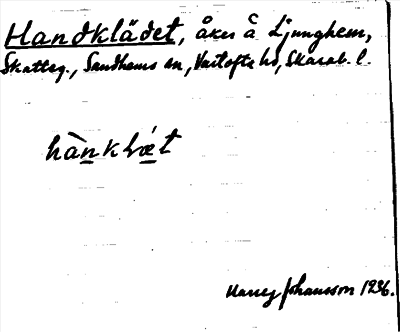 Handklädet, åker å Ljunghem,
Skatteg., Sandhems sn, Vartofta hd, Skarab. l.
hànklǽt
Harry Johansson 1936.